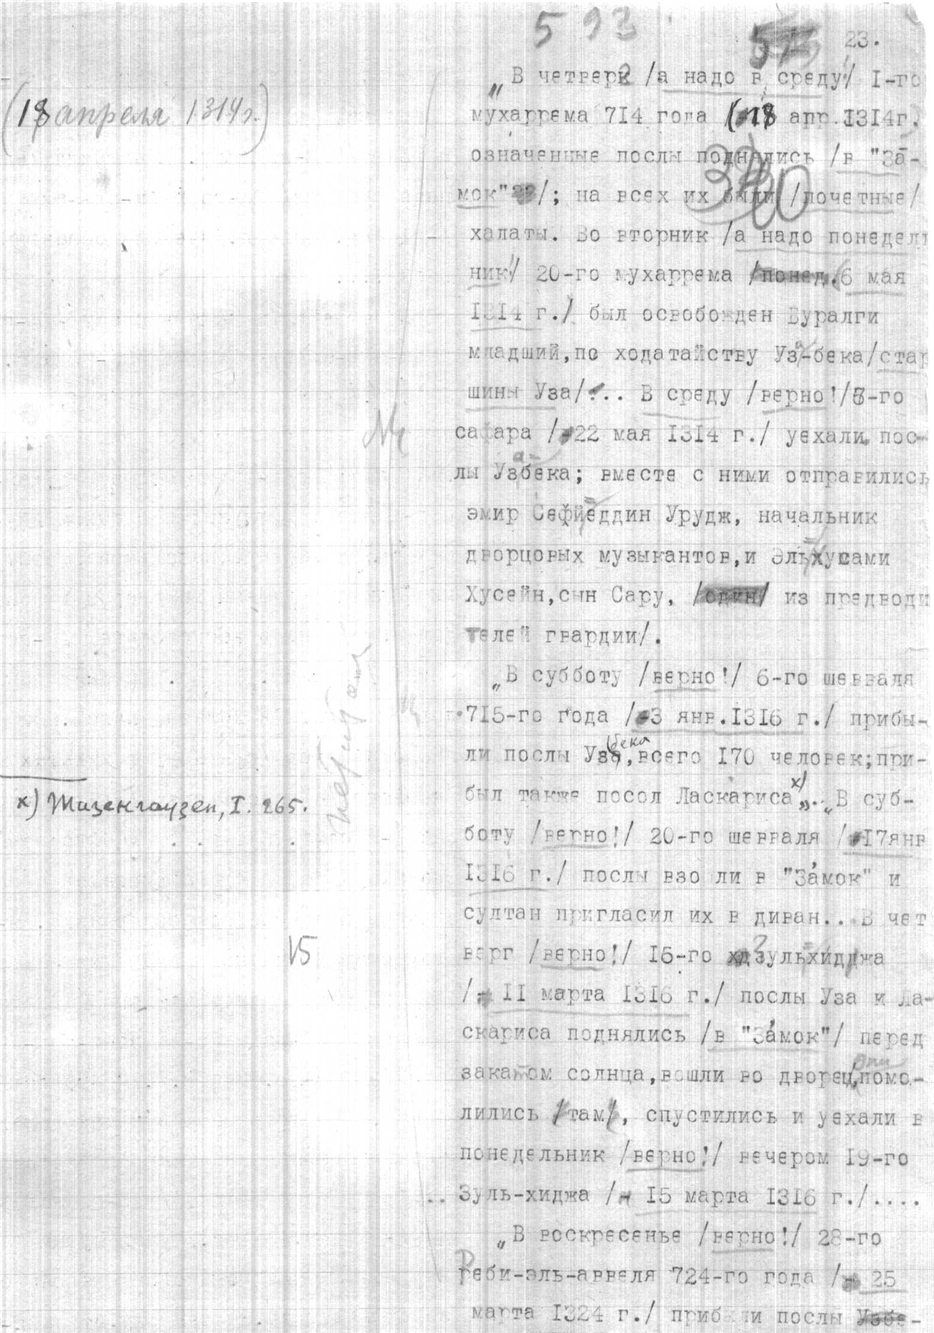 593
23.
(18 апреля 1314г.)
„В четверг /а надо в среду!/ I-го
мухаррема 714 года (18 апр.1314г.
означенные послы поднялись /в "За-
мок"/; на всех их были /почетные/
халаты. Во вторник /а надо понедель
ник!/ 20-го мухаррема /понед. 6 мая
1314 г./ был освобожден Буралги
младший,по ходатайству Узбека/стар
шины Уза/... В среду /верно!/ 6-го
сафара /22 мая 1314 г./ уехали пос-
лы Узбека; вместе с ними отправились
эмир Сефйеддин Урудж, начальник
дворцовых музыкантов,и Эльхусами
Хусейн,сын Сару, /один/ из предводи
телей гвардии/.
„В субботу /верно!/ 6-го шевваля
715-го года /3 янв.1316 г./ прибы-
ли послы Узбека,всего 170 человек;при-
был также посол Ласкариса х)... „В суб-
боту /верно!/ 20-го шевваля /17янв
1316 г./ послы взо ли в "За́мок" и
султан пригласил их в диван... В чет
верг /верно!/ 15-го зульхиджа
/ 11 марта 1316 г./ послы Уза и Ла-
скариса поднялись /в "За́мок"/ перед
закатом солнца,вошли во дворец,помо-
лились /там/, спустились и уехали в
понедельник /верно!/ вечером 19-го
Зуль-хиджа / 15 марта 1316 г./....
„В воскресенье /верно!/ 28-го
Реби-эль-аввеля 724-го года / 25
марта 1324 г./ прибыли послы Узбе-
х) Тизенгаузен, I. 265.
петитом
V5